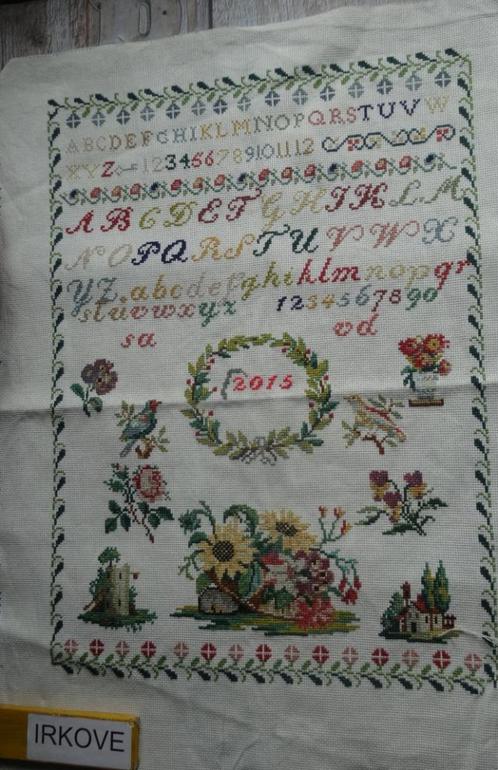 ABCDEFGHIKLMNOPQRSTUVW
XYZ 123456789101112
ABCDEFGHIKLM
NOPQRSTUVWX
YZ.abcdefghiklmnopqr
stuvwxyz 1234567890
sa vd
2015
IRKOVE